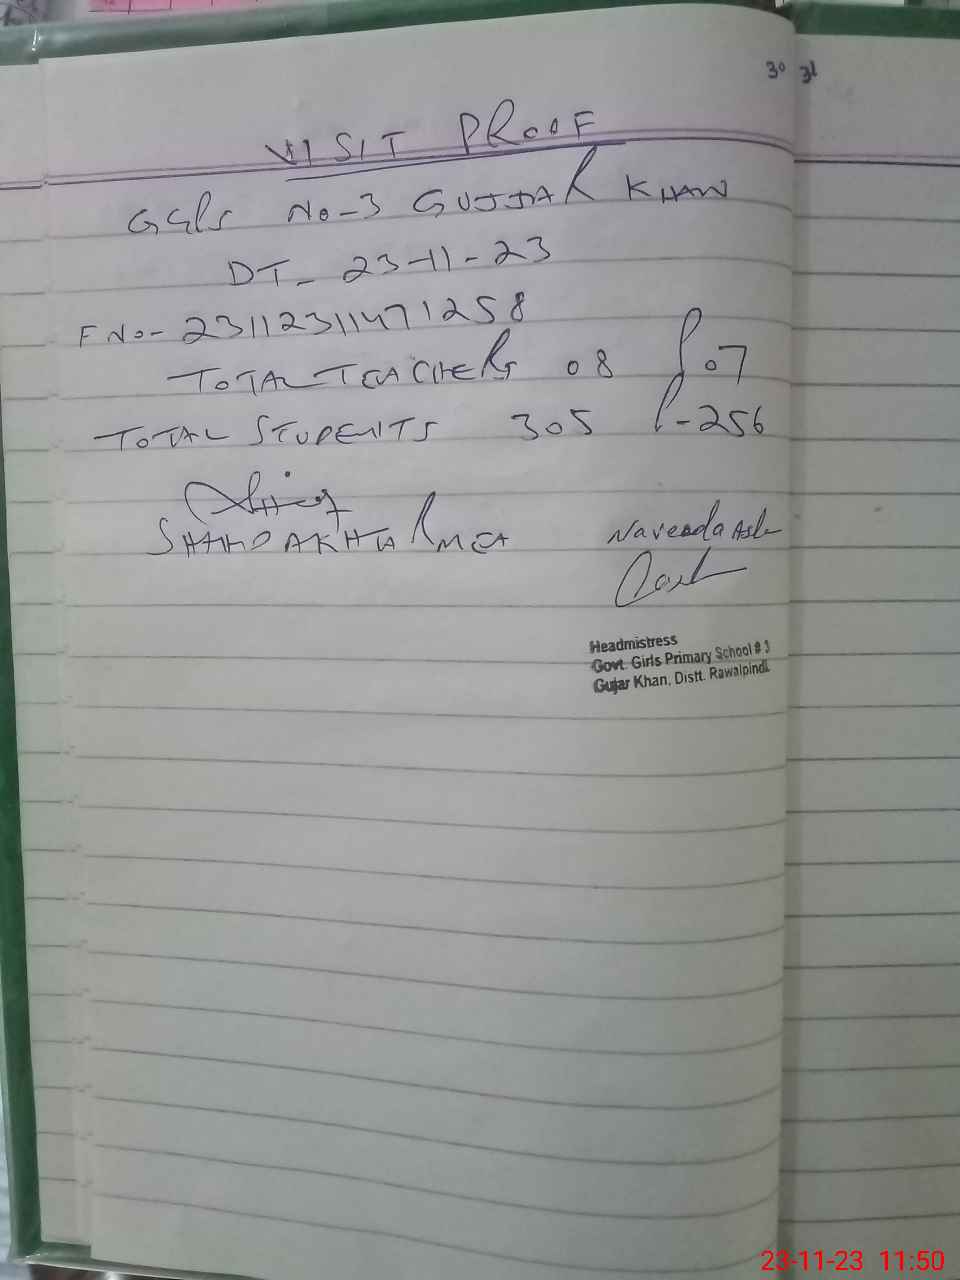 30 31
VISIT PROOF
GGPS No-3 GUJJAR KHAN
DT- 23-11-23
F No- 23112311471258
TOTAL TEACHERS 08 P 07
TOTAL STUDENTS 305 P-256
SHAHD AKHTAR MEA
Naveeda
Headmistress
Govt. Girls Primary School # 3
Gujar Khan, Distt. Rawalpindi.
23-11-23 11:50